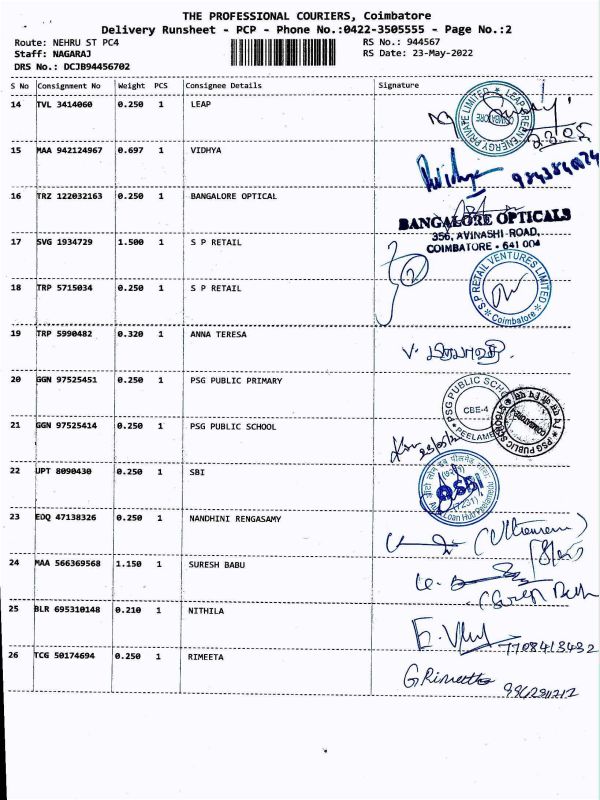 THE PROFESSIONAL COURIERS, Coimbatore
Delivery Runsheet - PCP - Phone No.:0422-3505555 - Page No.:2
Route: NEHRU ST PC4
RS No.: 944567
Staff: NAGARAJ
RS Date: 23-May-2022
DRS No.: DCJB94456702
S No Consignment No Weight PCS Consignee Details Signature
14 TVL 3414060 0.250 1 LEAP
LEAP GREEN ENERGY PRIVATE LIMITED
COIMBATORE
23/05
15 MAA 942124967 0.697 1 VIDHYA
16 TRZ 122032163 0.250 1 BANGALORE OPTICAL
BANGALORE OPTICALS
356, AVINASHI ROAD,
COIMBATORE - 641 004
17 SVG 1934729 1.500 1 S P RETAIL
18 TRP 5715034 0.250 1 S P RETAIL
S.P RETAIL VENTURES LIMITED
Coimbatore
19 TRP 5990482 0.320 1 ANNA TERESA
20 GGN 97525451 0.250 1 PSG PUBLIC PRIMARY
PSG PUBLIC
CBE-4
21 GGN 97525414 0.250 1 PSG PUBLIC SCHOOL
PSG PUBLIC SCHOOLS
COIMBATORE
22 UPT 8090430 0.250 1 SBI
SBI
(7251)
23 EDQ 47138326 0.250 1 NANDHINI RENGASAMY
24 MAA 566369568 1.150 1 SURESH BABU
25 BLR 695310148 0.210 1 NITHILA
7708413432
26 TCG 50174694 0.250 1 RIMEETA
G Rimeetha